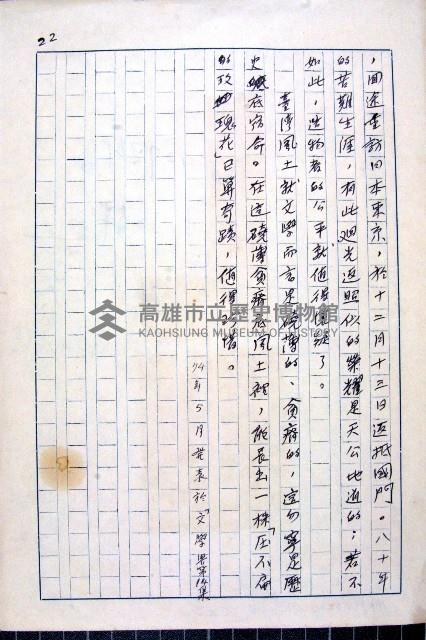 22
，回途並訪日本東京，於十二月十三日返抵國門。八十年
的苦難生涯，有此迴光返照似的榮耀是天公地道的；若不
如此，造物者的公平就值得懷疑了。
臺灣風土就文學而言是磽薄的、貧瘠的，這勿寧是歷
史底宿命。在這磽薄貧瘠底風土裡，能長出一株「压不扁
的玫瑰花」已算奇蹟，值得珍惜。
74年5月發表於「文學界第14集
高雄市立歷史博物館
KAOHSIUNG MUSEUM OF HISTORY